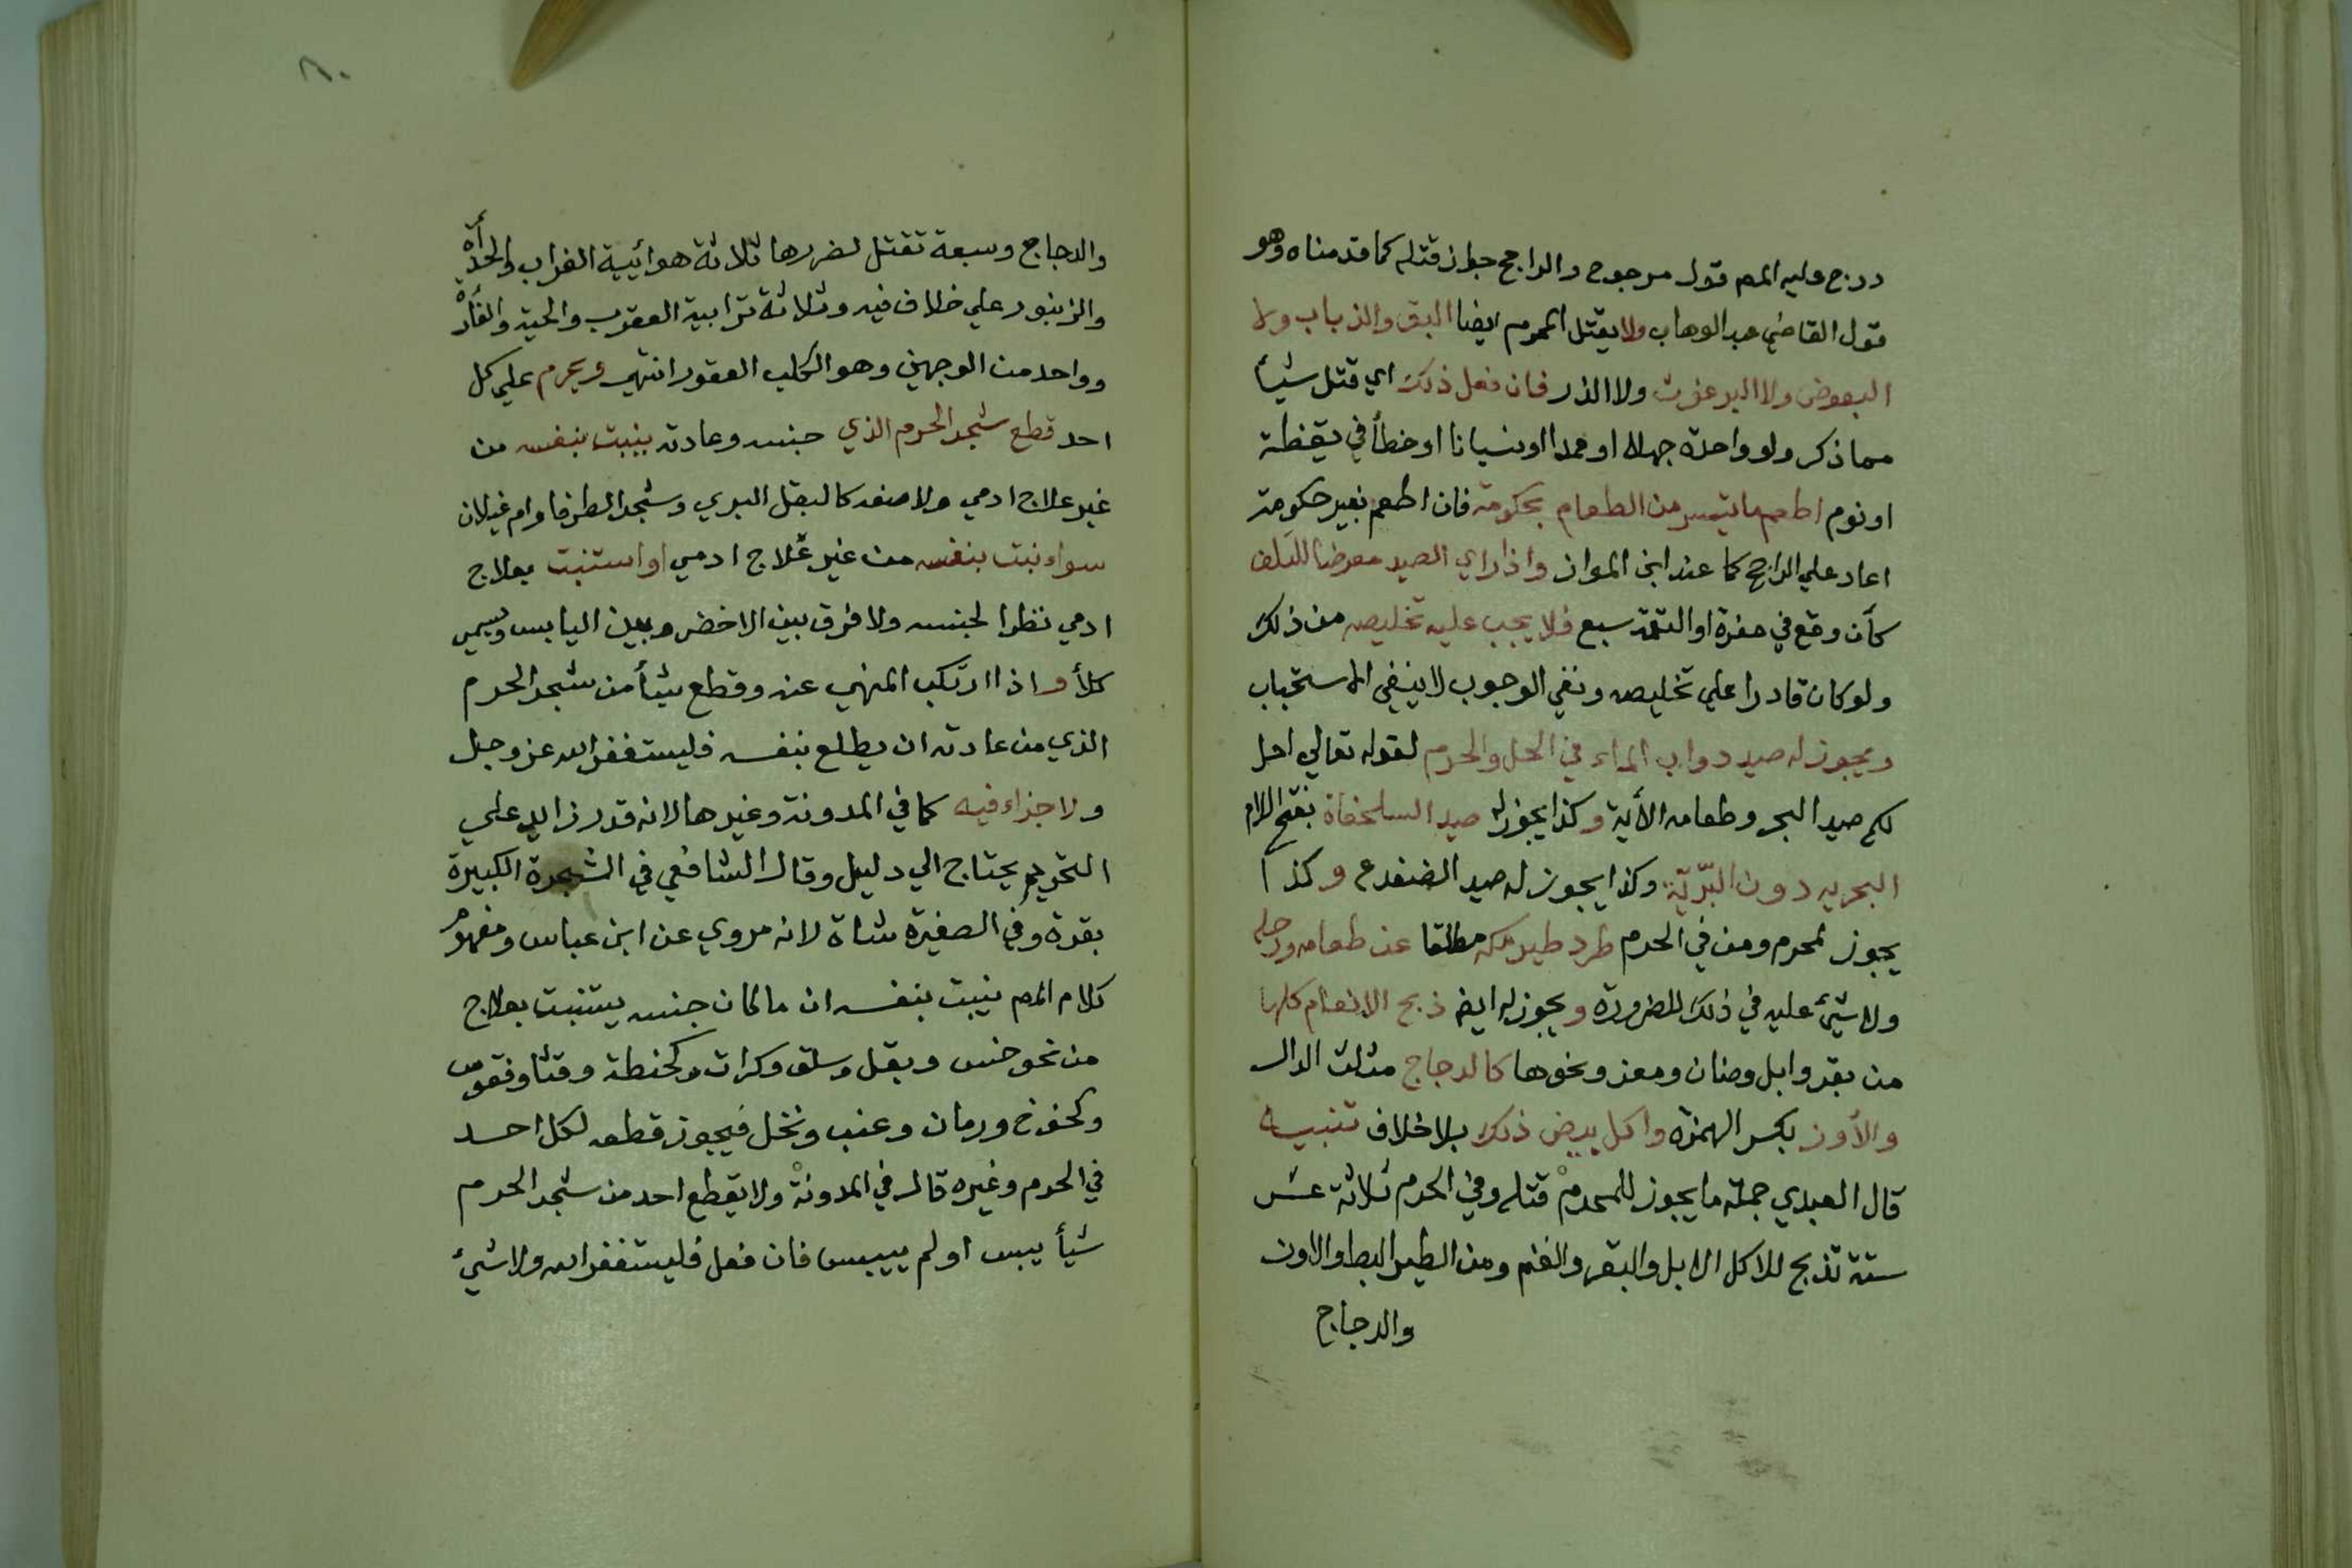 درج عليه المص قول مرجوح والراجح جواز قتله كما قدمناه وهو
قول القاضي عبد الوهاب ولا يقتل المحرم ايضا البق والذباب ولا
البعوض ولا البرغوث ولا الذر فان فعل ذلك اي قتل شيأ
مما ذكر ولو واحدة جهلا او عمدا اونسيانا او خطأ في يقظة
او نوم اطعم ما تيسر من الطعام بحكومة فان اطعم بغير حكومة
اعاد علي الراجح كما عند ابن المواز واذا راي الصيد معرضا للتلف
كأن وقع في حفرة او التقمه سبع فلا يجب عليه تخليصه من ذلك
ولو كان قادرا علي تخليصه ونفي الوجوب لا ينفي الاستحباب
ويجوز له صيد دواب الماء في الحل والحرم لقوله تعالي احل
لكم صيد البحر وطعامه الأية وكذا يجوز له صيد السلحفاة بفتح اللام
البحرية دون البرّيّة وكذا يجوز له صيد الضفدع وكذا
يجوز لمحرم ومن في الحرم طرد طير مكه مطلقا عن طعامه ورحله
ولا شيئ عليه في ذلك للضرورة ويجوز له ايضا ذبح الانعام كلها
من بقر وابل وضان ومعز ونحوها كالدجاج مثلث الدال
والأوز بكسر الهمزه واكل بيض ذلك بلا خلاف تنبيه
قال العبدي جملة ما يجوز للمحرم قتله وفي الحرم ثلاثة عشر
ستة تذبح للاكل الابل والبقر والغنم ومن الطير البط والاوز
والدجاج
٨٠
والدجاج وسبعة تقتل لضررها ثلاثة هوائية الغراب والحدأة
والزنبور علي خلاف فيه وثلاثة ترابية العقرب والحية والفأرة
وواحد من الوجهين وهو الكلب العقور انتهي ويحرم علي كل
احد قطع شجر الحرم الذي جنسه وعادته ينبت بنفسه من
غير علاج ادمي ولا صنعه كالبقل البري وشجر الطرفا وام غيلان
سواء نبت بنفسه من غير علاج ادمي او استنبت بعلاج
ادمي نظرا لجنسه ولا فرق بين الاخضر وبين اليابس ويسمي
كلأ واذا ارتكب المنهي عنه وقطع شيأ من شجر الحرم
الذي من عادته ان يطلع بنفسه فليستغفر الله عز وجل
ولا جزاء فيه كما في المدونة وغيرها لانه قدر زايد علي
التحريم يحتاج الي دليل وقال الشافعي في الشجرة الكبيرة
بقرة وفي الصغيرة شاة لانه مروي عن ابن عباس ومفهوم
كلام المص ينبت بنفسه ان ما كان جنسه يستنبت بعلاج
من نحو خس وبقل وسلق وكراث وكحنطة وقثا وفقوس
وكخوخ ورمان وعنب ونخل فيجوز قطعه لكل احد
في الحرم وغيره قال في المدونة ولا يقطع احد من شجر الحرم
شيأ يبس او لم ييبس فان فعل فليستغفر الله ولا شيئ